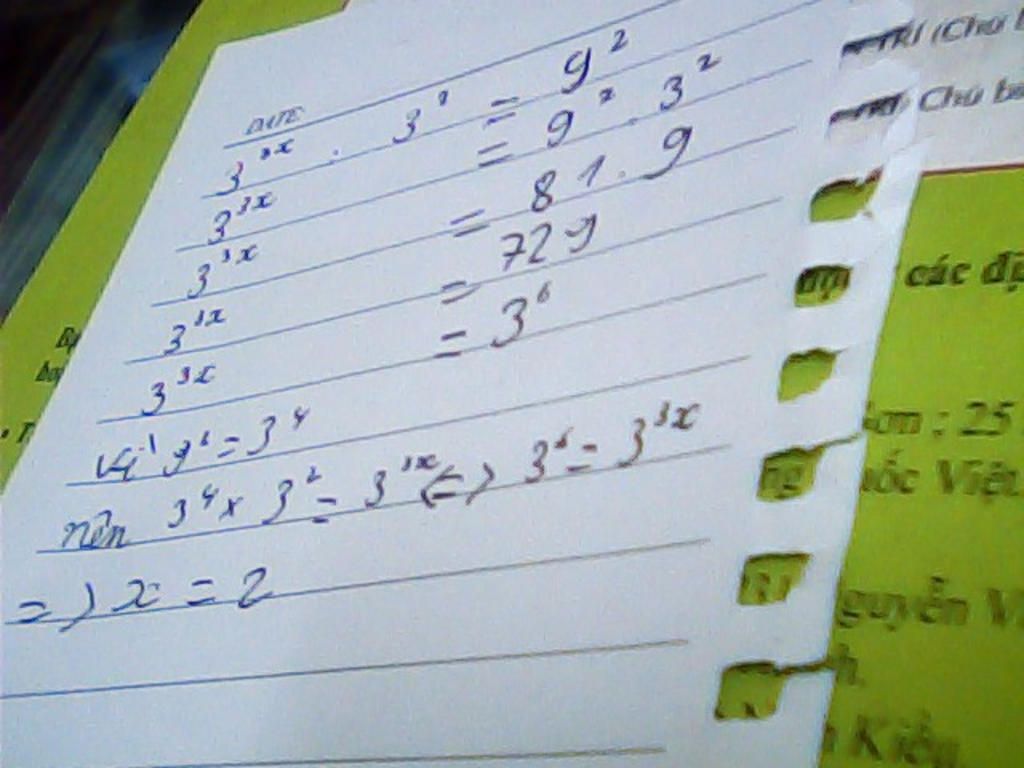 DATE
3^3x : 3^2 = 9^2
3^3x = 9^2 . 3^2
3^3x = 81 . 9
3^3x = 729
3^3x = 3^6
Vì 9^2 = 3^4
nên 3^4 x 3^2 = 3^3x (=) 3^6 = 3^3x
=) x = 2
TRÍ (Chủ b
Chủ bi
các đị
Sơn : 25
ốc Việt.
guyễn V
h.
Kiều